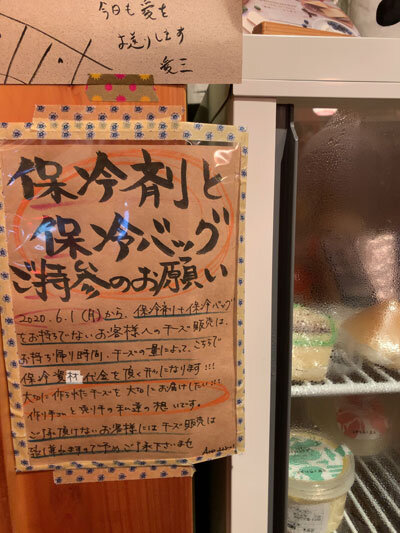 今日も愛を
お送りします
愛三
保冷剤と
保冷バッグ
ご持参のお願い
2020.6.1(月)から、保冷剤と保冷バッグ
をお持ちでないお客様へのチーズ販売は、
お持ち帰り時間、チーズの量によって、こちらで
保冷資材代金を頂く形になります!!!
大切に作られたチーズを大切にお届けしたい!!!
作り手の人と売り手の私達の想いです。
ご了承頂けないお客様にはチーズ販売は
致し兼ねますので予めご了承下さいませ